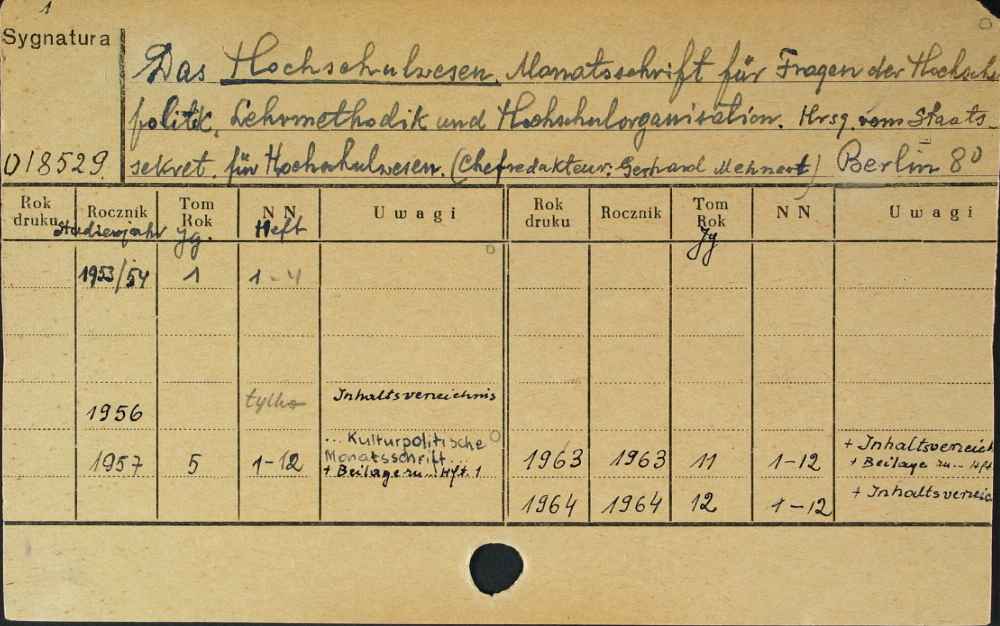 1
Sygnatura
Das Hochschulwesen. Monatsschrift für Fragen der Hochsch
politik, Lehrmethodik und Hochschulorganisation. Hrsg. vom Staats-
018529 sekret. für Hochschulwesen. (Chefredakteur: Gerhard Mehnert) Berlin 8°
Rok druku Rocznik Tom Rok NN Uwagi Rok druku Rocznik Tom Rok NN Uwagi
Studienjahr Jg. Heft Jg
1953/54 1 1-4
1956 tylko Inhaltsverzeichnis
... Kulturpolitische
Monatsschrift...
1957 5 1-12 + Beilage zu... Hft. 1
1963 1963 11 1-12 + Inhaltsverzeich
+ Beilage zu... Hft
1964 1964 12 1-12 + Inhaltsverzeic